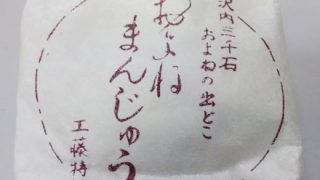 沢内三千石
およねの出どこ
およね
まんじゅう
工藤特